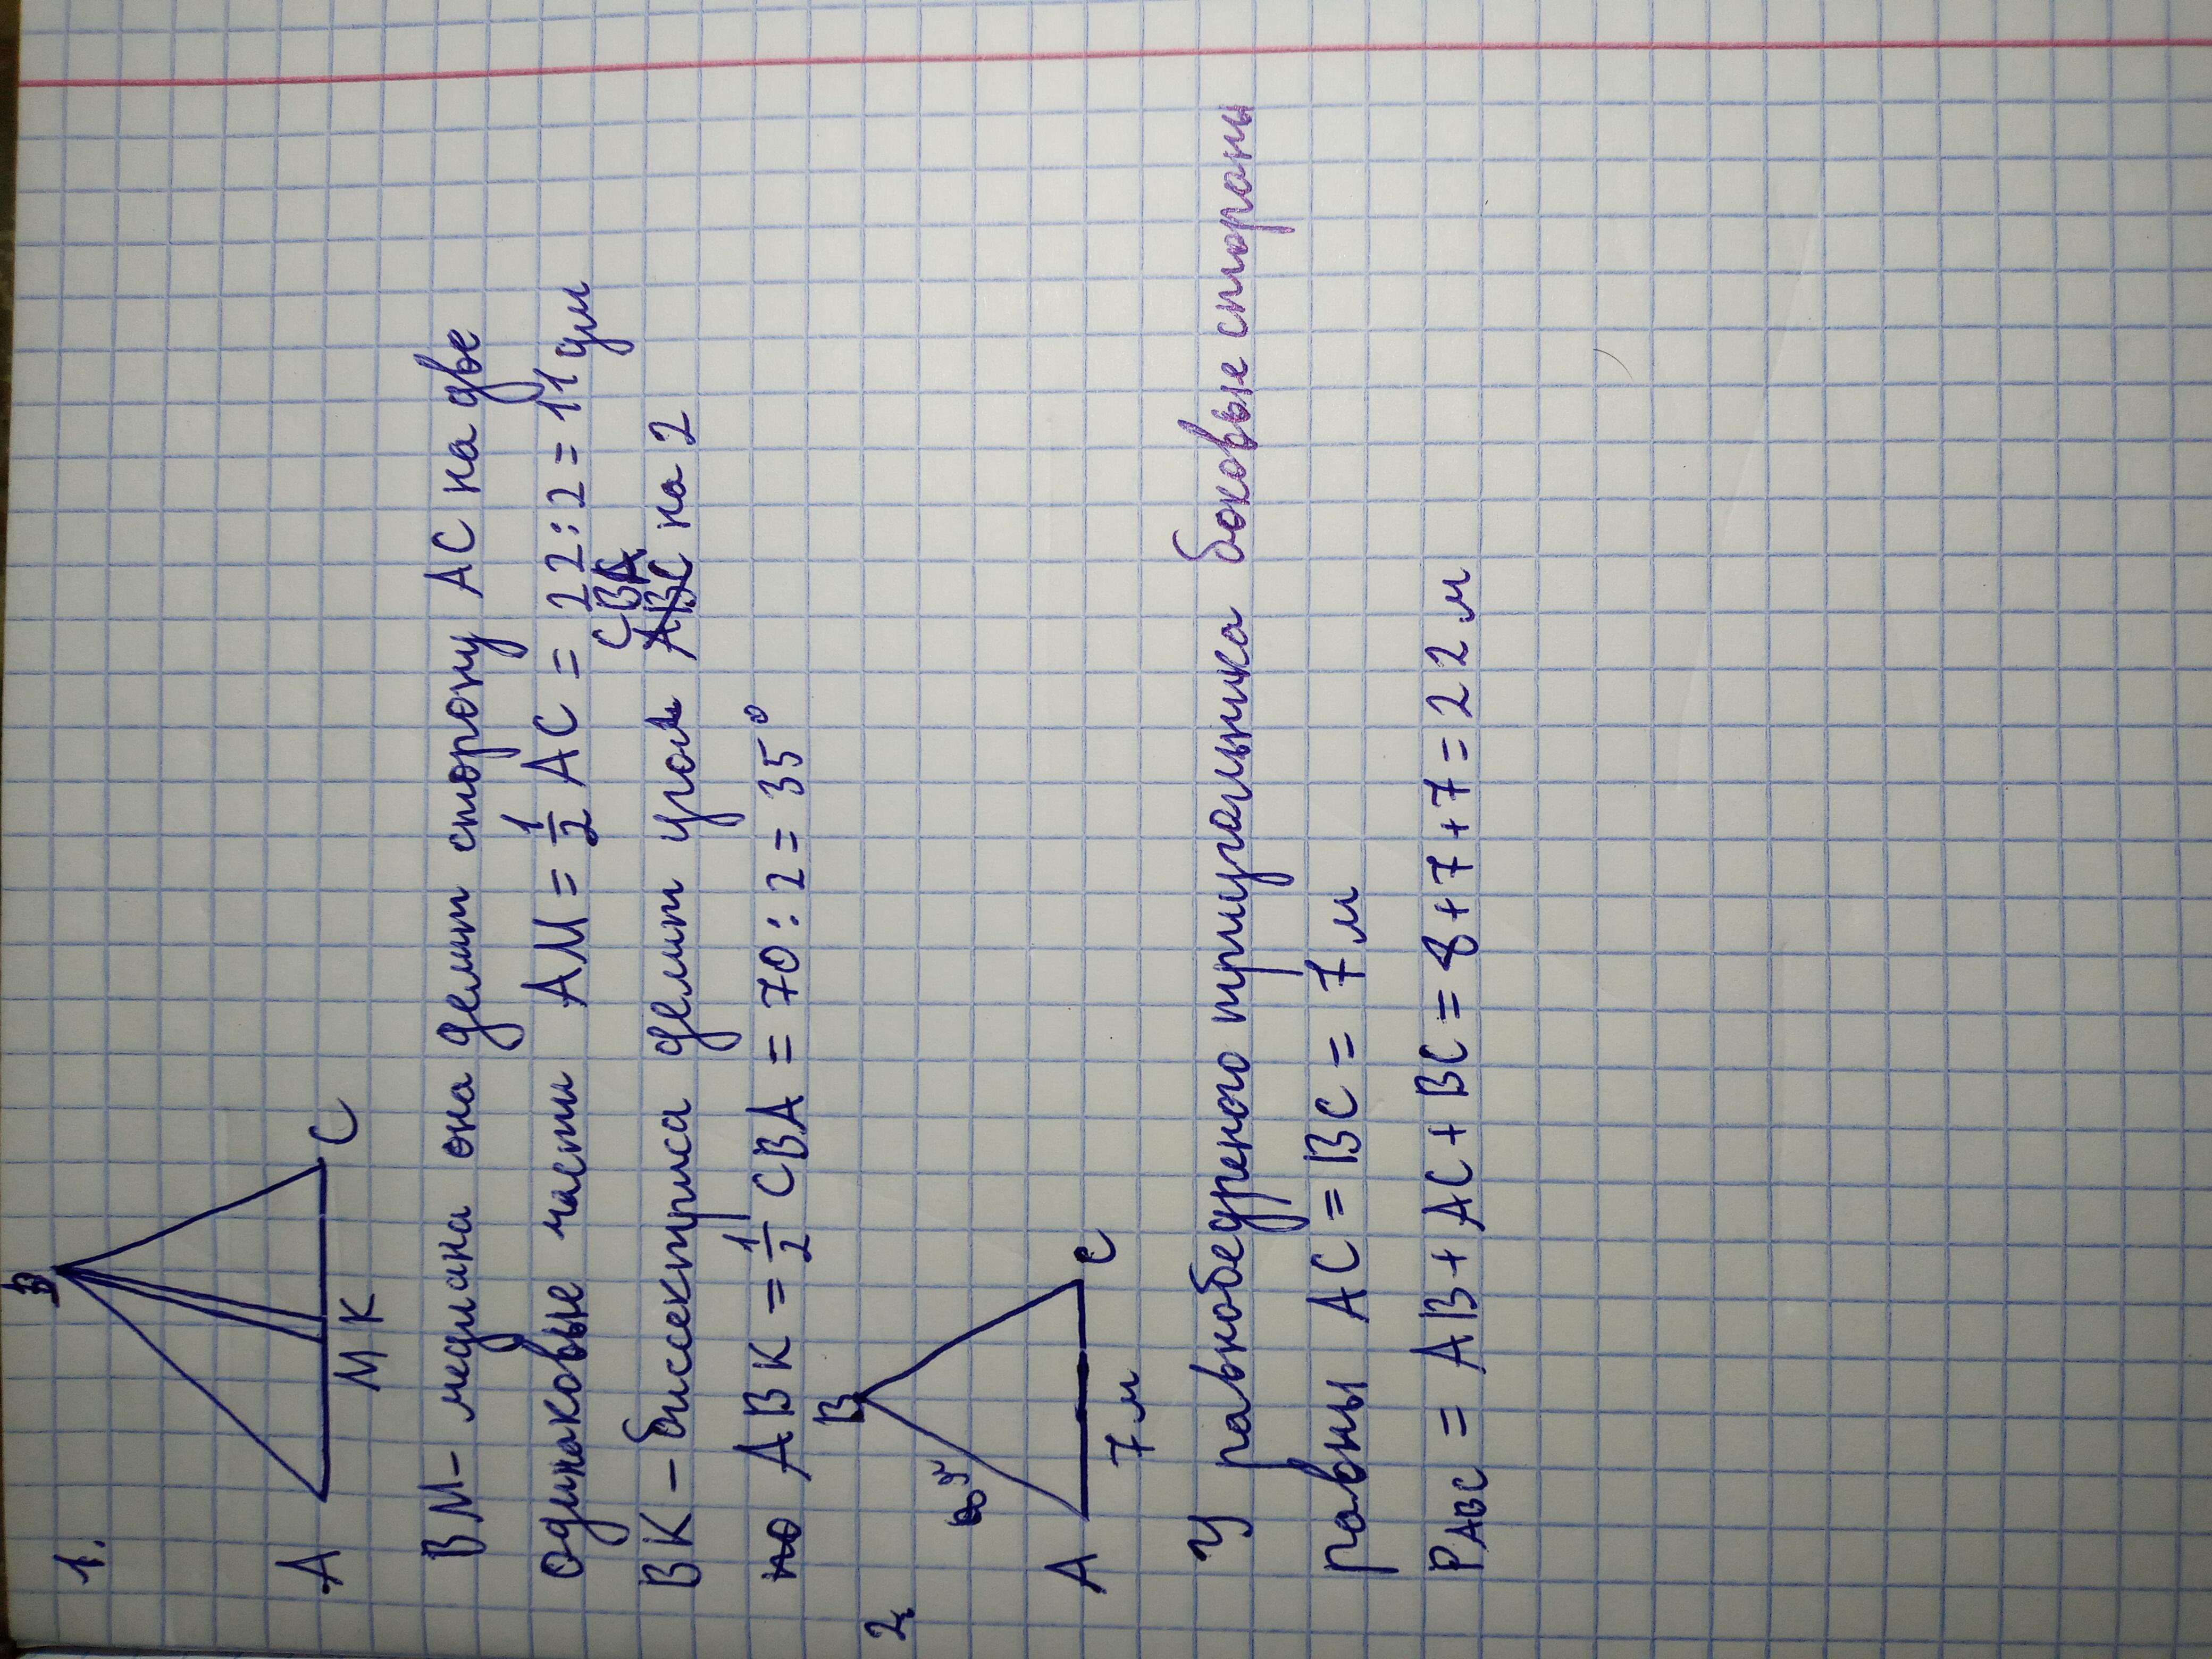 1.
B
A
M K
C
BM - медиана она делит сторону AC на две
одинаковые части AM = 1/2 AC = 22:2 = 11 дм
CBA
BK - биссектриса делит угол ABC на 2
но ABK = 1/2 CBA = 70:2 = 35°
2.
B
A
C
7 м
У равнобедреного триугольника боковые стороны
равны AC = BC = 7 м
PABC = AB + AC + BC = 8 + 7 + 7 = 22 м